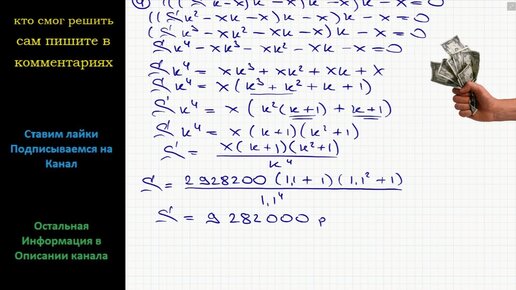 кто смог решить
сам пишите в
комментариях
Ставим лайки
Подписываемся на
Канал
Остальная
Информация в
Описании канала
((Sk² - xk - x)k - x)k - x = 0
(Sk³ - xk² - xk - x)k - x = 0
Sk⁴ - xk³ - xk² - xk - x = 0
Sk⁴ = xk³ + xk² + xk + x
Sk⁴ = x(k³ + k² + k + 1)
Sk⁴ = x(k²(k+1) + k+1)
Sk⁴ = x(k+1)(k²+1)
S = x(k+1)(k²+1) / k⁴
S = 2928200(1,1+1)(1,1²+1) / 1,1⁴
S = 9 282000 р